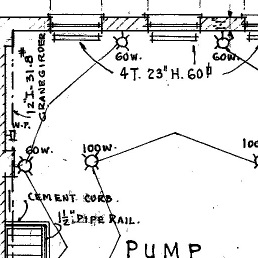 60W.
60W.
4T. 23" H. 60#
12" I-31.8#
CRANE GIRDER
W.P.
60W.
100W.
100
CEMENT CURB.
1½" PIPE RAIL.
PUMP